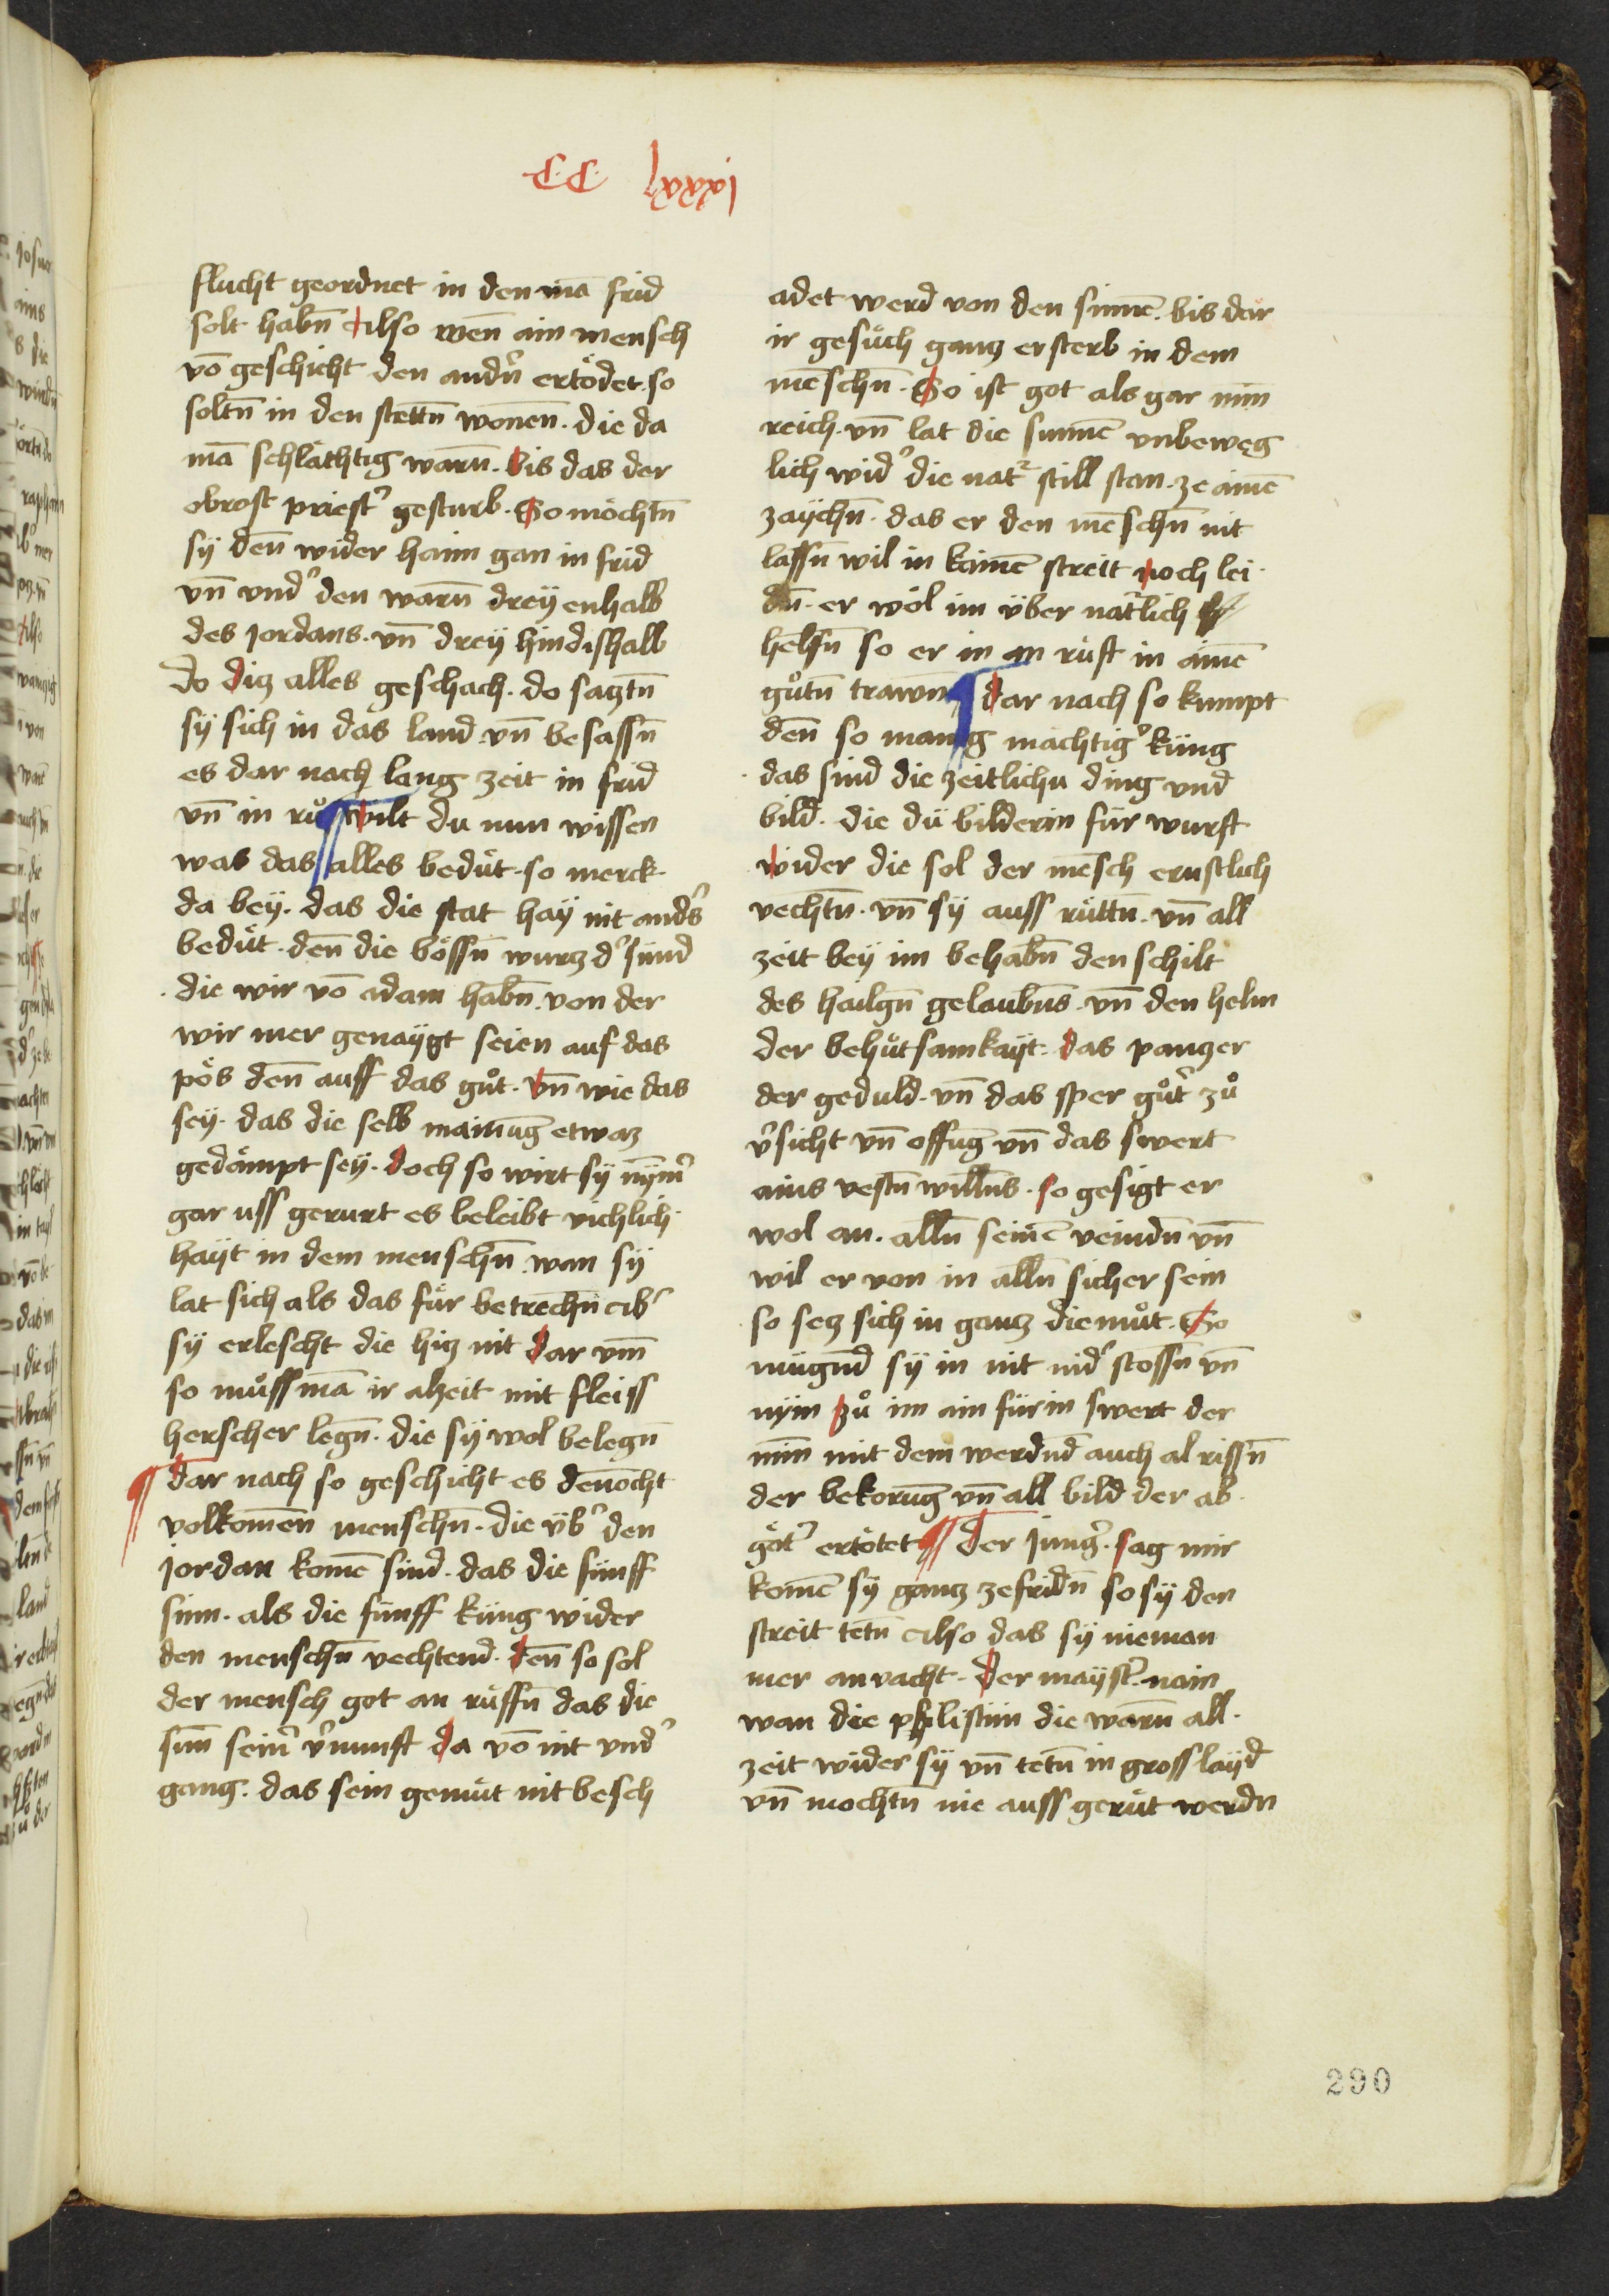 CC lxxxi
flucht geordnet in den mā frid
solt habn̄ Also wen̄ ain mensch
vō geschicht den andn̄ ertödet. so
soltn̄ in den stettn̄ wonen̄. die da
mā schlächtig warn̄. bis das der
obrost priest' gesturb. So möchtn̄
sÿ den̄ wider haim gan in frid
vn̄ vnd' den warn̄ dreÿ enhalb
des Jordans. vn̄ dreÿ hindishalb
do diz alles geschach. do saztn̄
sÿ sich in das land vn̄ besassn̄
es dar nach lang zeit in frid
vn̄ in rů ¶ wilt du nun wissen
was das alles bedüt. so merck
da beÿ. das die stat haÿ nit and's
bedüt. den̄ die bössn̄ wurz d' sünd
die wir vō adam habn̄. von der
wir mer genaÿgt seien auf das
pös den̄ auff das gůt. vn̄ wie das
seÿ. das die selb mainūg etwaz
gedämpt seÿ. doch so wirt sÿ nÿm̄'
gar uss gerurt es beleibt vichlich
haÿt in dem menschn̄. wan sÿ
lat sich als das für betrechn̄ ab'
sÿ erlescht die hiz nit dar vm̄
so můss mā ir alzeit mit fleiss
herscher legn̄. die sÿ wol belegn̄
¶ dar nach so geschicht es den̄ocht
volkomen̄ menschn̄. die üb' den
jordan komē sind. das die fünff
sinn. als die fünff küng wider
den menschn̄ vechtend. den̄ so sol
der mensch got an rüffn̄ das die
sun̄ sein' v'nunft da vō nit vnd'
gang. das sein gemüt nit besch
adet werd von den sinnē. bis dar
ir gesüch ganz ersterb in dem
mēschn̄. So ist got als gar min̄
reich. vn̄ lat die sunnē vnbeweg
lich wid' die nat' still stan. ze ainē
zaÿchn̄. das er den mēschn̄ nit
lassn̄ wil in kainē streit noch lei
dn̄. er wöl im über nātlich
helfn̄ so er in an rüft in ainē
gůtn̄ trawn̄ ¶ dar nach so kumpt
den̄ so manig mächtig' küng
das sind die zeitlichn ding vnd
bild. die dü bilderin für wurft
wider die sol der mēsch ernstlich
vechtn̄. vn̄ sÿ auss rüttn̄. vn̄ all
zeit beÿ im behabn̄ den schilt
des hailgn̄ gelaubn̄s. vn̄ den helm
der behütsamkaÿt. das panzer
der geduld. vn̄ das sper gůt' zů
v'sicht vn̄ offūg vn̄ das swert
ains vestn̄ willn̄s. so gesigt er
wol an. alln̄ seinē veindn̄ vn̄
wil er von in alln̄ sicher sein
so sez sich in ganz diemůt. So
mügn̄d sÿ in nit nid' stossn̄ vn̄
nÿm zů im ain fürin swert der
min̄ mit dem werdn̄d auch al rissn̄
der bekorūg vn̄ all bild der ab
göt' ertötet ¶ Der jung'. sag mir
komē sÿ ganz zefridn̄ so sÿ den
streit tetn̄ also das sÿ nieman
mer anvacht. der maÿst'. nain
wan die philistim die warn̄ all
zeit wider sÿ vn̄ tetn̄ in gross laÿd
vn̄ mochtn̄ nie auss gerüt werdn
290